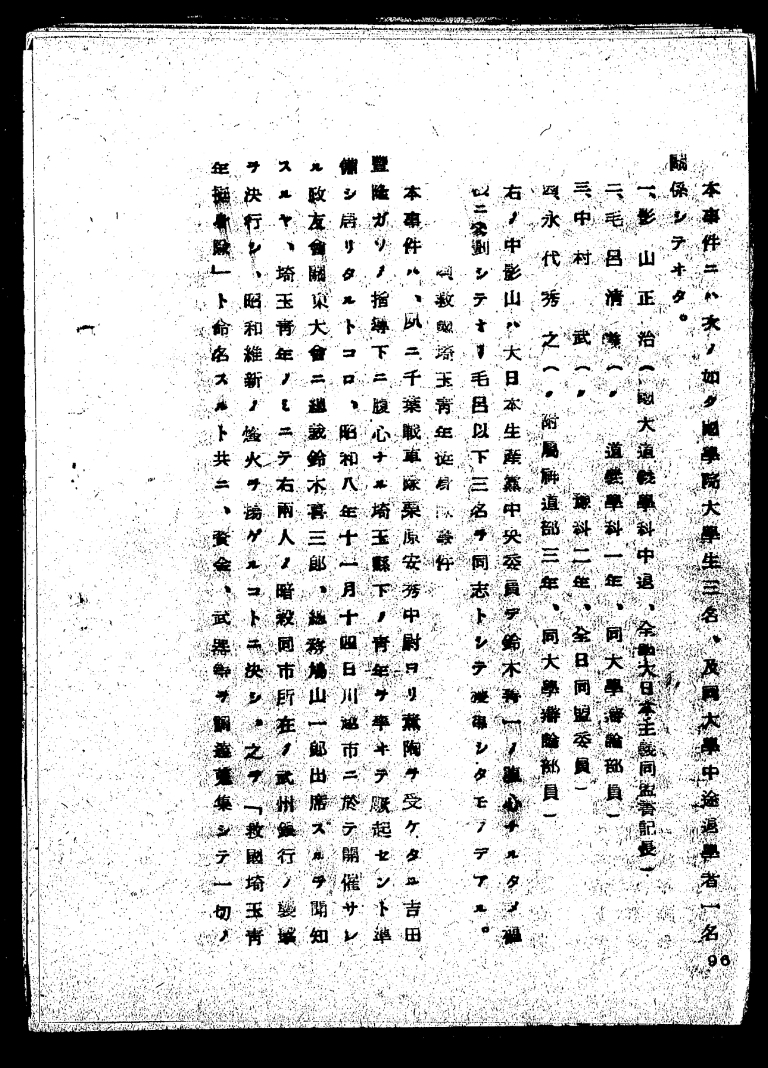 本事件ニハ次ノ如ク國學院大學生三名、及同大學中途退學者一名
關係シテオタ。
一、影山正治（國大道義學科中退、全國大日本主義同盟書記長）
二、毛呂清（〃 道義學科一年、同大學辯論部員）
三、中村 武（〃 豫科二年、全日同盟委員）
四、永代秀之（〃 附屬神道部三年、同大學辯論部員）
右ノ中影山ハ大日本生産黨中央委員デ鈴木善一ノ腹心ナルタメ
ニ參劃シテオリ毛呂以下三名ヲ同志トシテシタモノデアル。
救國埼玉青年挺身隊事件
本事件ハ、夙ニ千葉戰車隊栗原安秀中尉ヨリ薰陶ヲ受ケタル吉田
豐隆ガソノ指導下ニ腹心ナル埼玉縣下ノ青年ヲ率ヰテ蹶起セント準
備シ居リタルトコロ、昭和八年十一月十四日川越市ニ於テ開催サレ
ル政友會關東大會ニ總裁鈴木喜三郎、總務鳩山一郎出席スルヲ聞知
スルヤ、埼玉青年ノミニテ右兩人ノ暗殺同市所在ノ武州銀行ノ襲撃
ヲ決行シ、昭和維新ノ烽火ヲ揚ゲルコトニ決シ。之ヲ「救國埼玉青
年挺身隊」ト命名スルト共ニ、資金、武器等ヲ調達蒐集シテ一切ノ
96